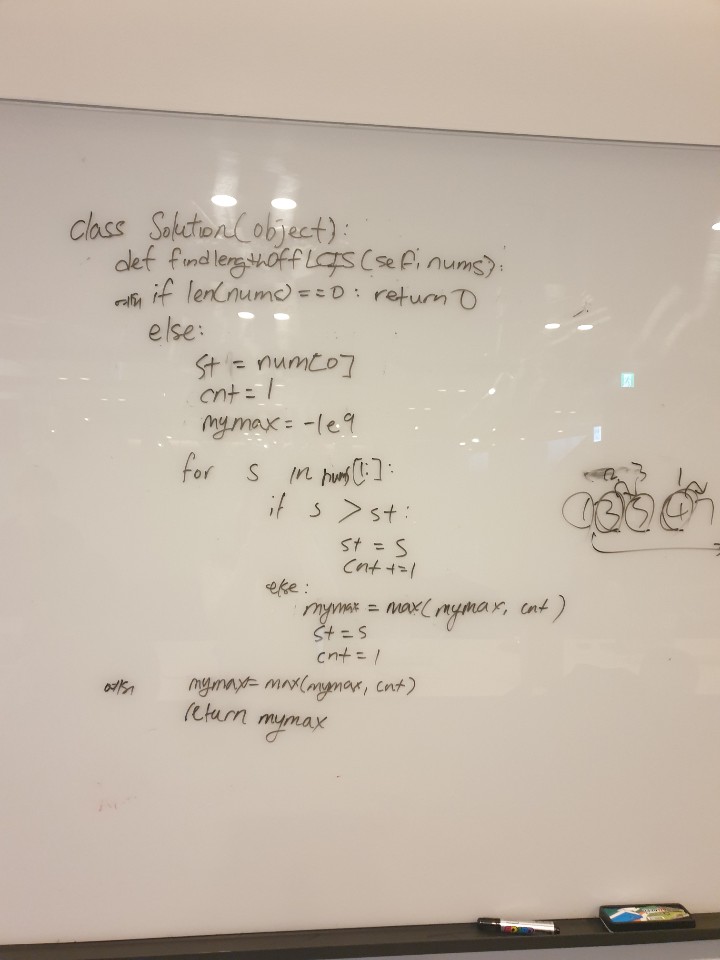 class Solution(object):
def findlengthOffLCIS(self, nums):
if len(nums)==0: return 0
else:
st = num[0]
cnt = 1
mymax = -1e9
for s in nums[1:]:
if s > st:
st = s
cnt +=1
else:
mymax = max(mymax, cnt)
st = s
cnt = 1
mymax = max(mymax, cnt)
return mymax
2 3 1
1 3 5 4 7